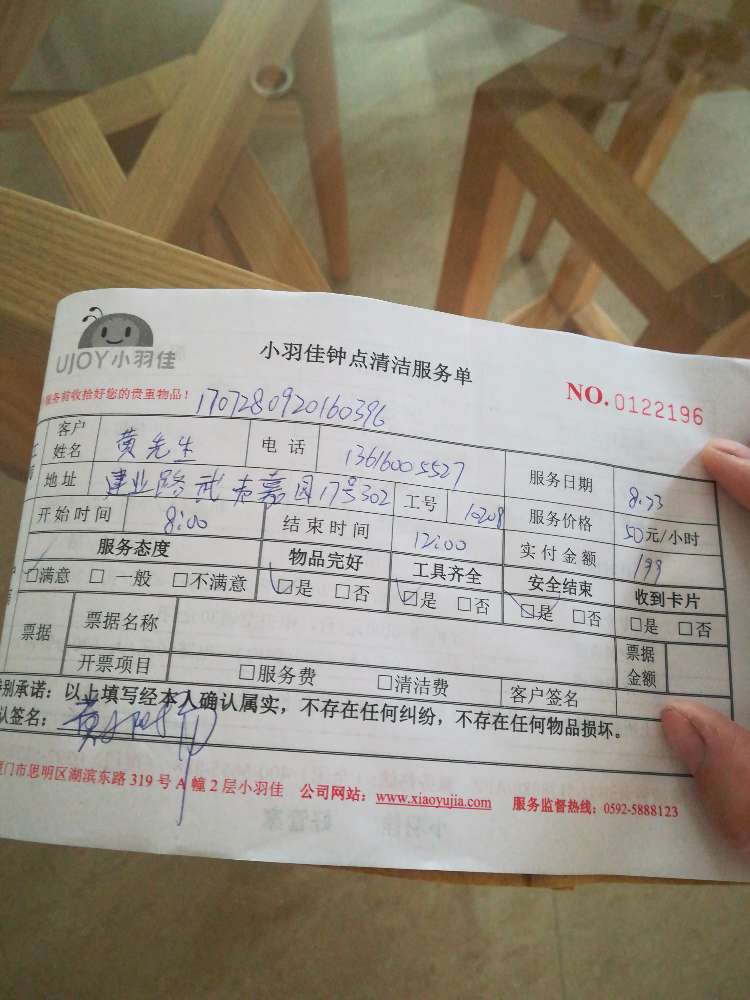 UJOY小羽佳
小羽佳钟点清洁服务单
NO.0122196
服务前收拾好您的贵重物品! 1707280920160396
客户姓名 黄先生 电话 13616005527 服务日期 8.23
地址 建业路 嘉园17号302 工号 10208 服务价格 50元/小时
开始时间 8:00 结束时间 12:00 实付金额 199
服务态度 物品完好 工具齐全 安全结束 收到卡片
☑满意 □一般 □不满意 ☑是 □否 ☑是 □否 ☑是 □否 □是 □否
票据 票据名称 票据金额
开票项目 □服务费 □清洁费 客户签名
别承诺：以上填写经本人确认属实，不存在任何纠纷，不存在任何物品损坏。
认签名：
门市思明区湖滨东路 319 号 A 幢 2 层小羽佳 公司网站：www.xiaoyujia.com 服务监督热线：0592-5888123